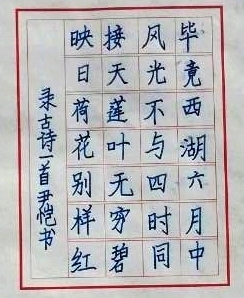 毕竟西湖六月中
风光不与四时同
接天莲叶无穷碧
映日荷花别样红
录古诗一首尹恺书